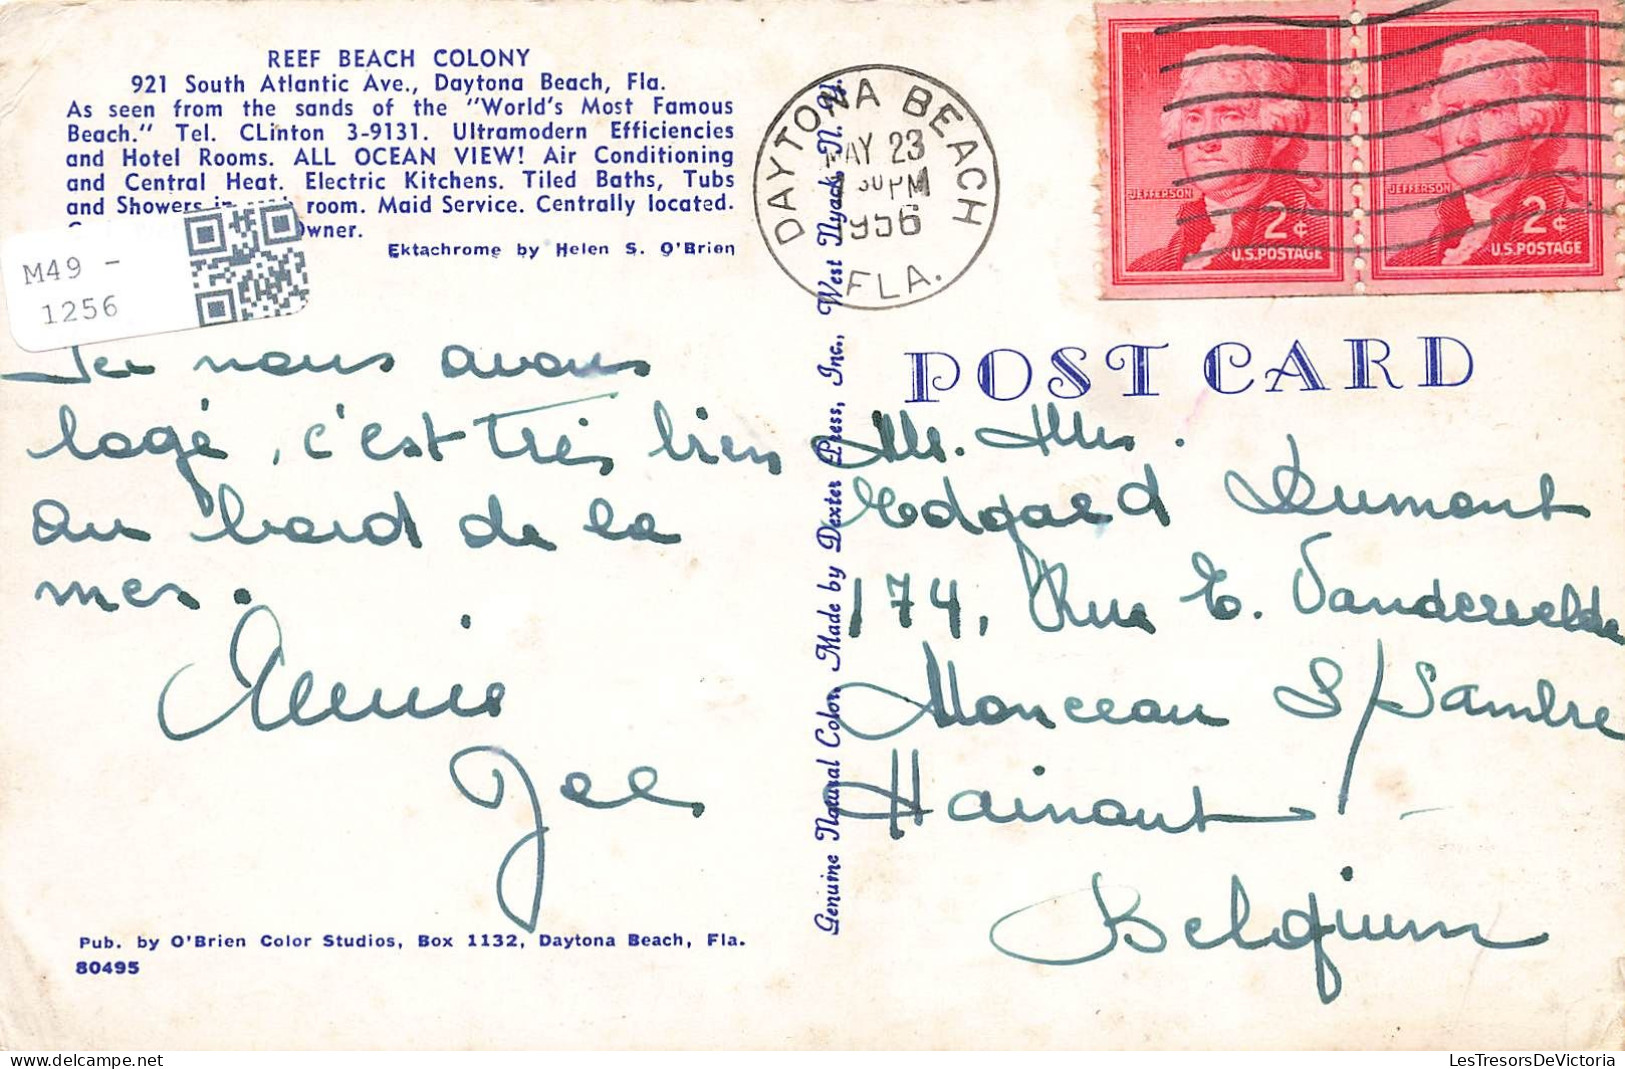 REEF BEACH COLONY
921 South Atlantic Ave., Daytona Beach, Fla.
As seen from the sands of the "World's Most Famous
Beach." Tel. CLinton 3-9131. Ultramodern Efficiencies
and Hotel Rooms. ALL OCEAN VIEW! Air Conditioning
and Central Heat. Electric Kitchens. Tiled Baths, Tubs
and Showers in room. Maid Service. Centrally located.
Owner.
Ektachrome by Helen S. O'Brien
M49 -
1256
Ici nous avons
logé, c'est très bien
au bord de la
mer.
Joe
Pub. by O'Brien Color Studios, Box 1132, Daytona Beach, Fla.
80495
Genuine Natural Color, Made by Dexter Press, Inc., West Nyack, N. Y.
DAYTONA BEACH
MAY 23
30 PM
1956
FLA.
JEFFERSON
2¢
U.S. POSTAGE
JEFFERSON
2¢
U.S. POSTAGE
POST CARD
Edgard Dumont
174, Rue E. Vandervelde
Monceau S/Sambre
Hainaut
Belgium
LesTresorsDeVictoria